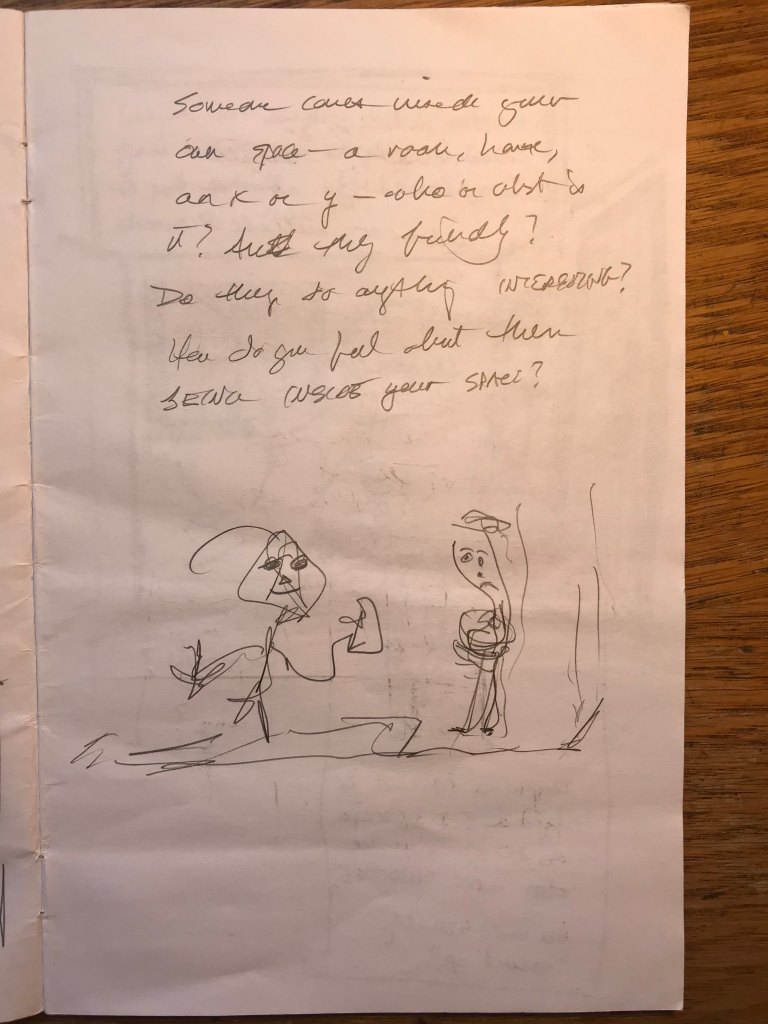 Someone comes inside your
own space — a room, house,
or y — who or what is
it? Are they friendly?
Do they do anything INTERESTING?
How do you feel about them
BEING INSIDE your SPACE?